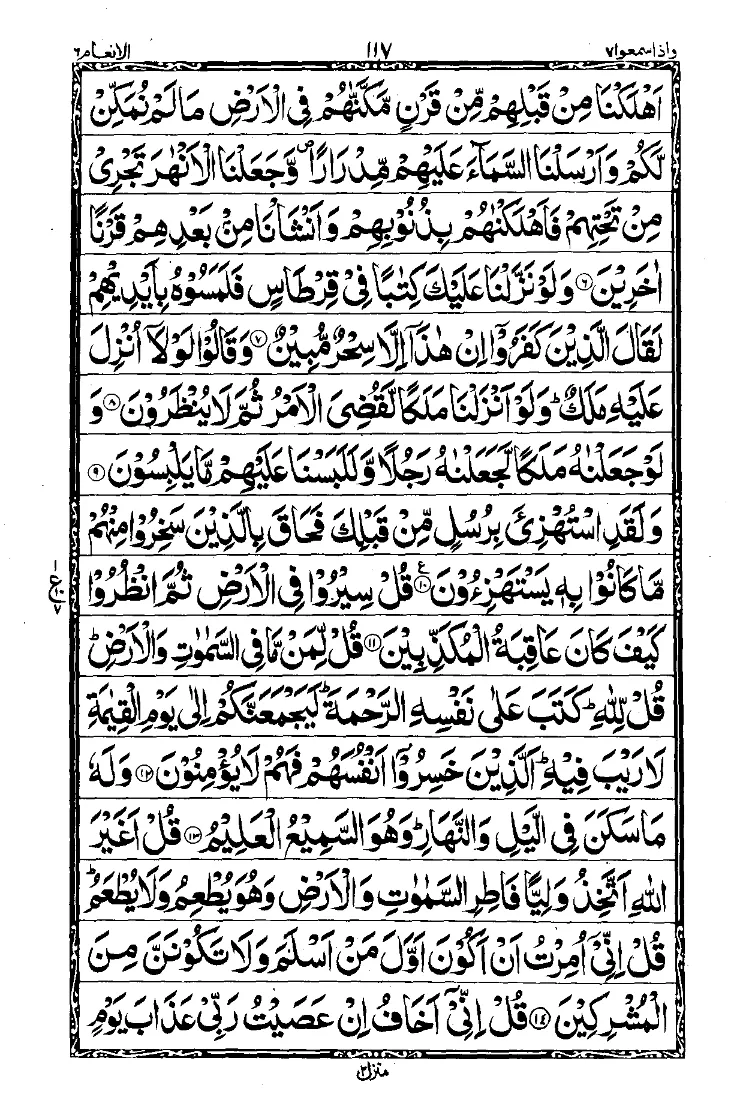 واذاسمعوا۷ ۱۱۷ الانعام۶
اَهۡلَكۡنَا مِنۡ قَبۡلِهِمۡ مِّنۡ قَرۡنٍ مَّكَّنّٰهُمۡ فِى الۡاَرۡضِ مَا لَمۡ نُمَكِّنۡ
لَّكُمۡ وَاَرۡسَلۡنَا السَّمَآءَ عَلَيۡهِمۡ مِّدۡرَارًا ۖ وَّجَعَلۡنَا الۡاَنۡهٰرَ تَجۡرِىۡ
مِنۡ تَحۡتِهِمۡ فَاَهۡلَكۡنٰهُمۡ بِذُنُوۡبِهِمۡ وَاَنۡشَاۡنَا مِنۡۢ بَعۡدِهِمۡ قَرۡنًا
اٰخَرِيۡنَ ۶ وَلَوۡ نَزَّلۡنَا عَلَيۡكَ كِتٰبًا فِىۡ قِرۡطَاسٍ فَلَمَسُوۡهُ بِاَيۡدِيۡهِمۡ
لَقَالَ الَّذِيۡنَ كَفَرُوۡۤا اِنۡ هٰذَاۤ اِلَّا سِحۡرٌ مُّبِيۡنٌ ۷ وَقَالُوۡا لَوۡلَاۤ اُنۡزِلَ
عَلَيۡهِ مَلَكٌ ؕ وَلَوۡ اَنۡزَلۡنَا مَلَكًا لَّقُضِىَ الۡاَمۡرُ ثُمَّ لَا يُنۡظَرُوۡنَ ۸ وَ
لَوۡ جَعَلۡنٰهُ مَلَكًا لَّجَعَلۡنٰهُ رَجُلًا وَّلَلَبَسۡنَا عَلَيۡهِمۡ مَّا يَلۡبِسُوۡنَ ۹
وَلَقَدِ اسۡتُهۡزِئَ بِرُسُلٍ مِّنۡ قَبۡلِكَ فَحَاقَ بِالَّذِيۡنَ سَخِرُوۡا مِنۡهُمۡ
مَّا كَانُوۡا بِهٖ يَسۡتَهۡزِءُوۡنَ ۱۰ ع قُلۡ سِيۡرُوۡا فِى الۡاَرۡضِ ثُمَّ انْظُرُوۡا
۱ ع ۱۰ ۷
كَيۡفَ كَانَ عَاقِبَةُ الۡمُكَذِّبِيۡنَ ۱۱ قُلۡ لِّمَنۡ مَّا فِى السَّمٰوٰتِ وَالۡاَرۡضِ ؕ
قُلْ لِّلّٰهِ ؕ كَتَبَ عَلٰى نَفۡسِهِ الرَّحۡمَةَ ؕ لَيَجۡمَعَنَّكُمۡ اِلٰى يَوۡمِ الۡقِيٰمَةِ
لَا رَيۡبَ فِيۡهِ ؕ اَلَّذِيۡنَ خَسِرُوۡۤا اَنۡفُسَهُمۡ فَهُمۡ لَا يُؤۡمِنُوۡنَ ۱۲ وَلَهٗ
مَا سَكَنَ فِى الَّيۡلِ وَالنَّهَارِ ؕ وَهُوَ السَّمِيۡعُ الۡعَلِيۡمُ ۱۳ قُلۡ اَغَيۡرَ
اللّٰهِ اَتَّخِذُ وَلِيًّا فَاطِرِ السَّمٰوٰتِ وَالۡاَرۡضِ وَهُوَ يُطۡعِمُ وَلَا يُطۡعَمُ ؕ
قُلۡ اِنِّىۡۤ اُمِرۡتُ اَنۡ اَكُوۡنَ اَوَّلَ مَنۡ اَسۡلَمَ وَلَا تَكُوۡنَنَّ مِنَ
الۡمُشۡرِكِيۡنَ ۱۴ قُلۡ اِنِّىۡۤ اَخَافُ اِنۡ عَصَيۡتُ رَبِّىۡ عَذَابَ يَوۡمٍ
منزل۲